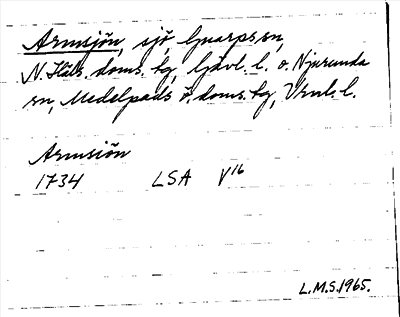 Armsjön, sjö, Gnarps sn,
N. Häls. doms. hg, Gävl. l. o. Njurunda
sn, Medelpads ö. doms. hg, Vrnl. l.
Armsiön
1734 LSA V16
L.M.S. 1965.